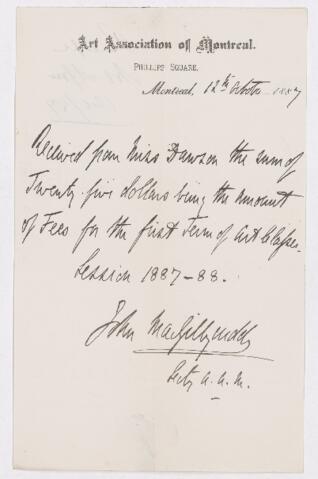 Art Association of Montreal.
Phillips Square.
Montreal, 12th October 1887
Received from Miss Dawson the sum of
Twenty five dollars being the amount
of Fees for the first Term of Art Classes.
Session 1887-88.
John
Secty A.A.M.